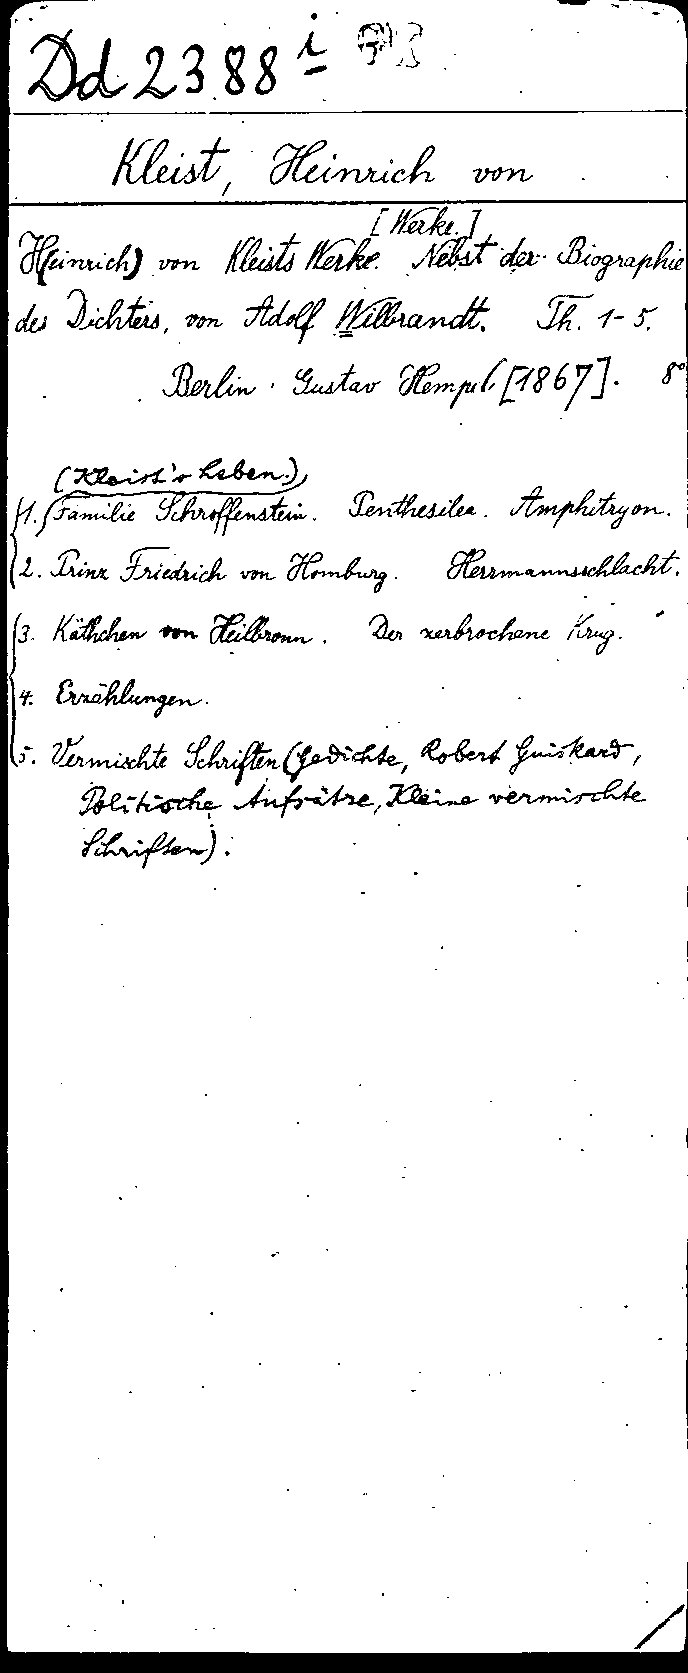 Dd 2388 i
Kleist, Heinrich von
[Werke.]
H(einrich) von Kleists Werke. Nebst der Biographie
des Dichters, von Adolf Wilbrandt. Th. 1-5.
Berlin. Gustav Hempel [1867]. 8°
(Kleist's Leben.)
1. Familie Schroffenstein. Penthesilea. Amphitryon.
2. Prinz Friedrich von Homburg. Herrmannsschlacht.
3. Käthchen von Heilbronn. Der zerbrochene Krug.
4. Erzählungen.
5. Vermischte Schriften (Gedichte, Robert Guiskard,
Politische Aufsätze, Kleine vermischte
Schriften).